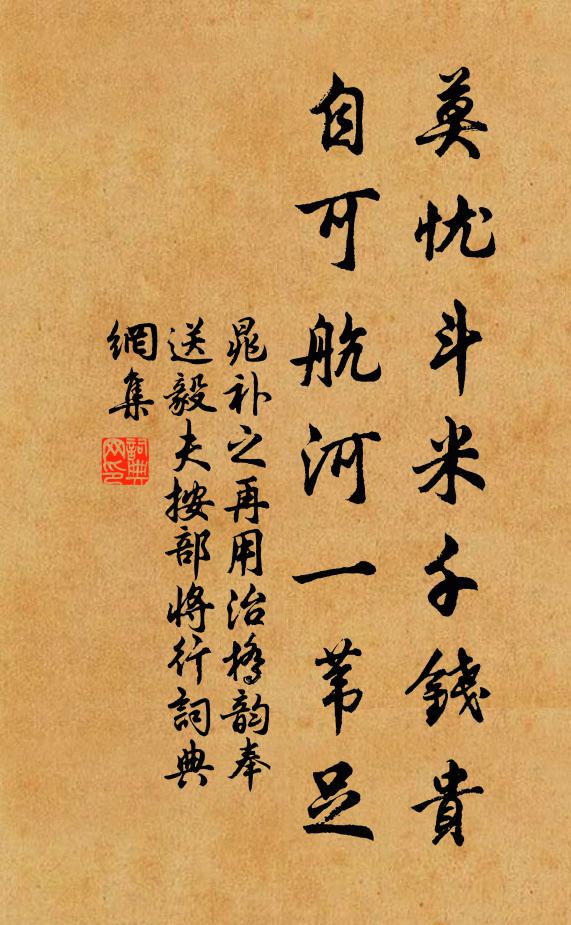 莫忧斗米千錢貴
自可航河一苇足
晁补之再用治橋韵奉
送毅夫按部將行詞典
網集
詞典
网印